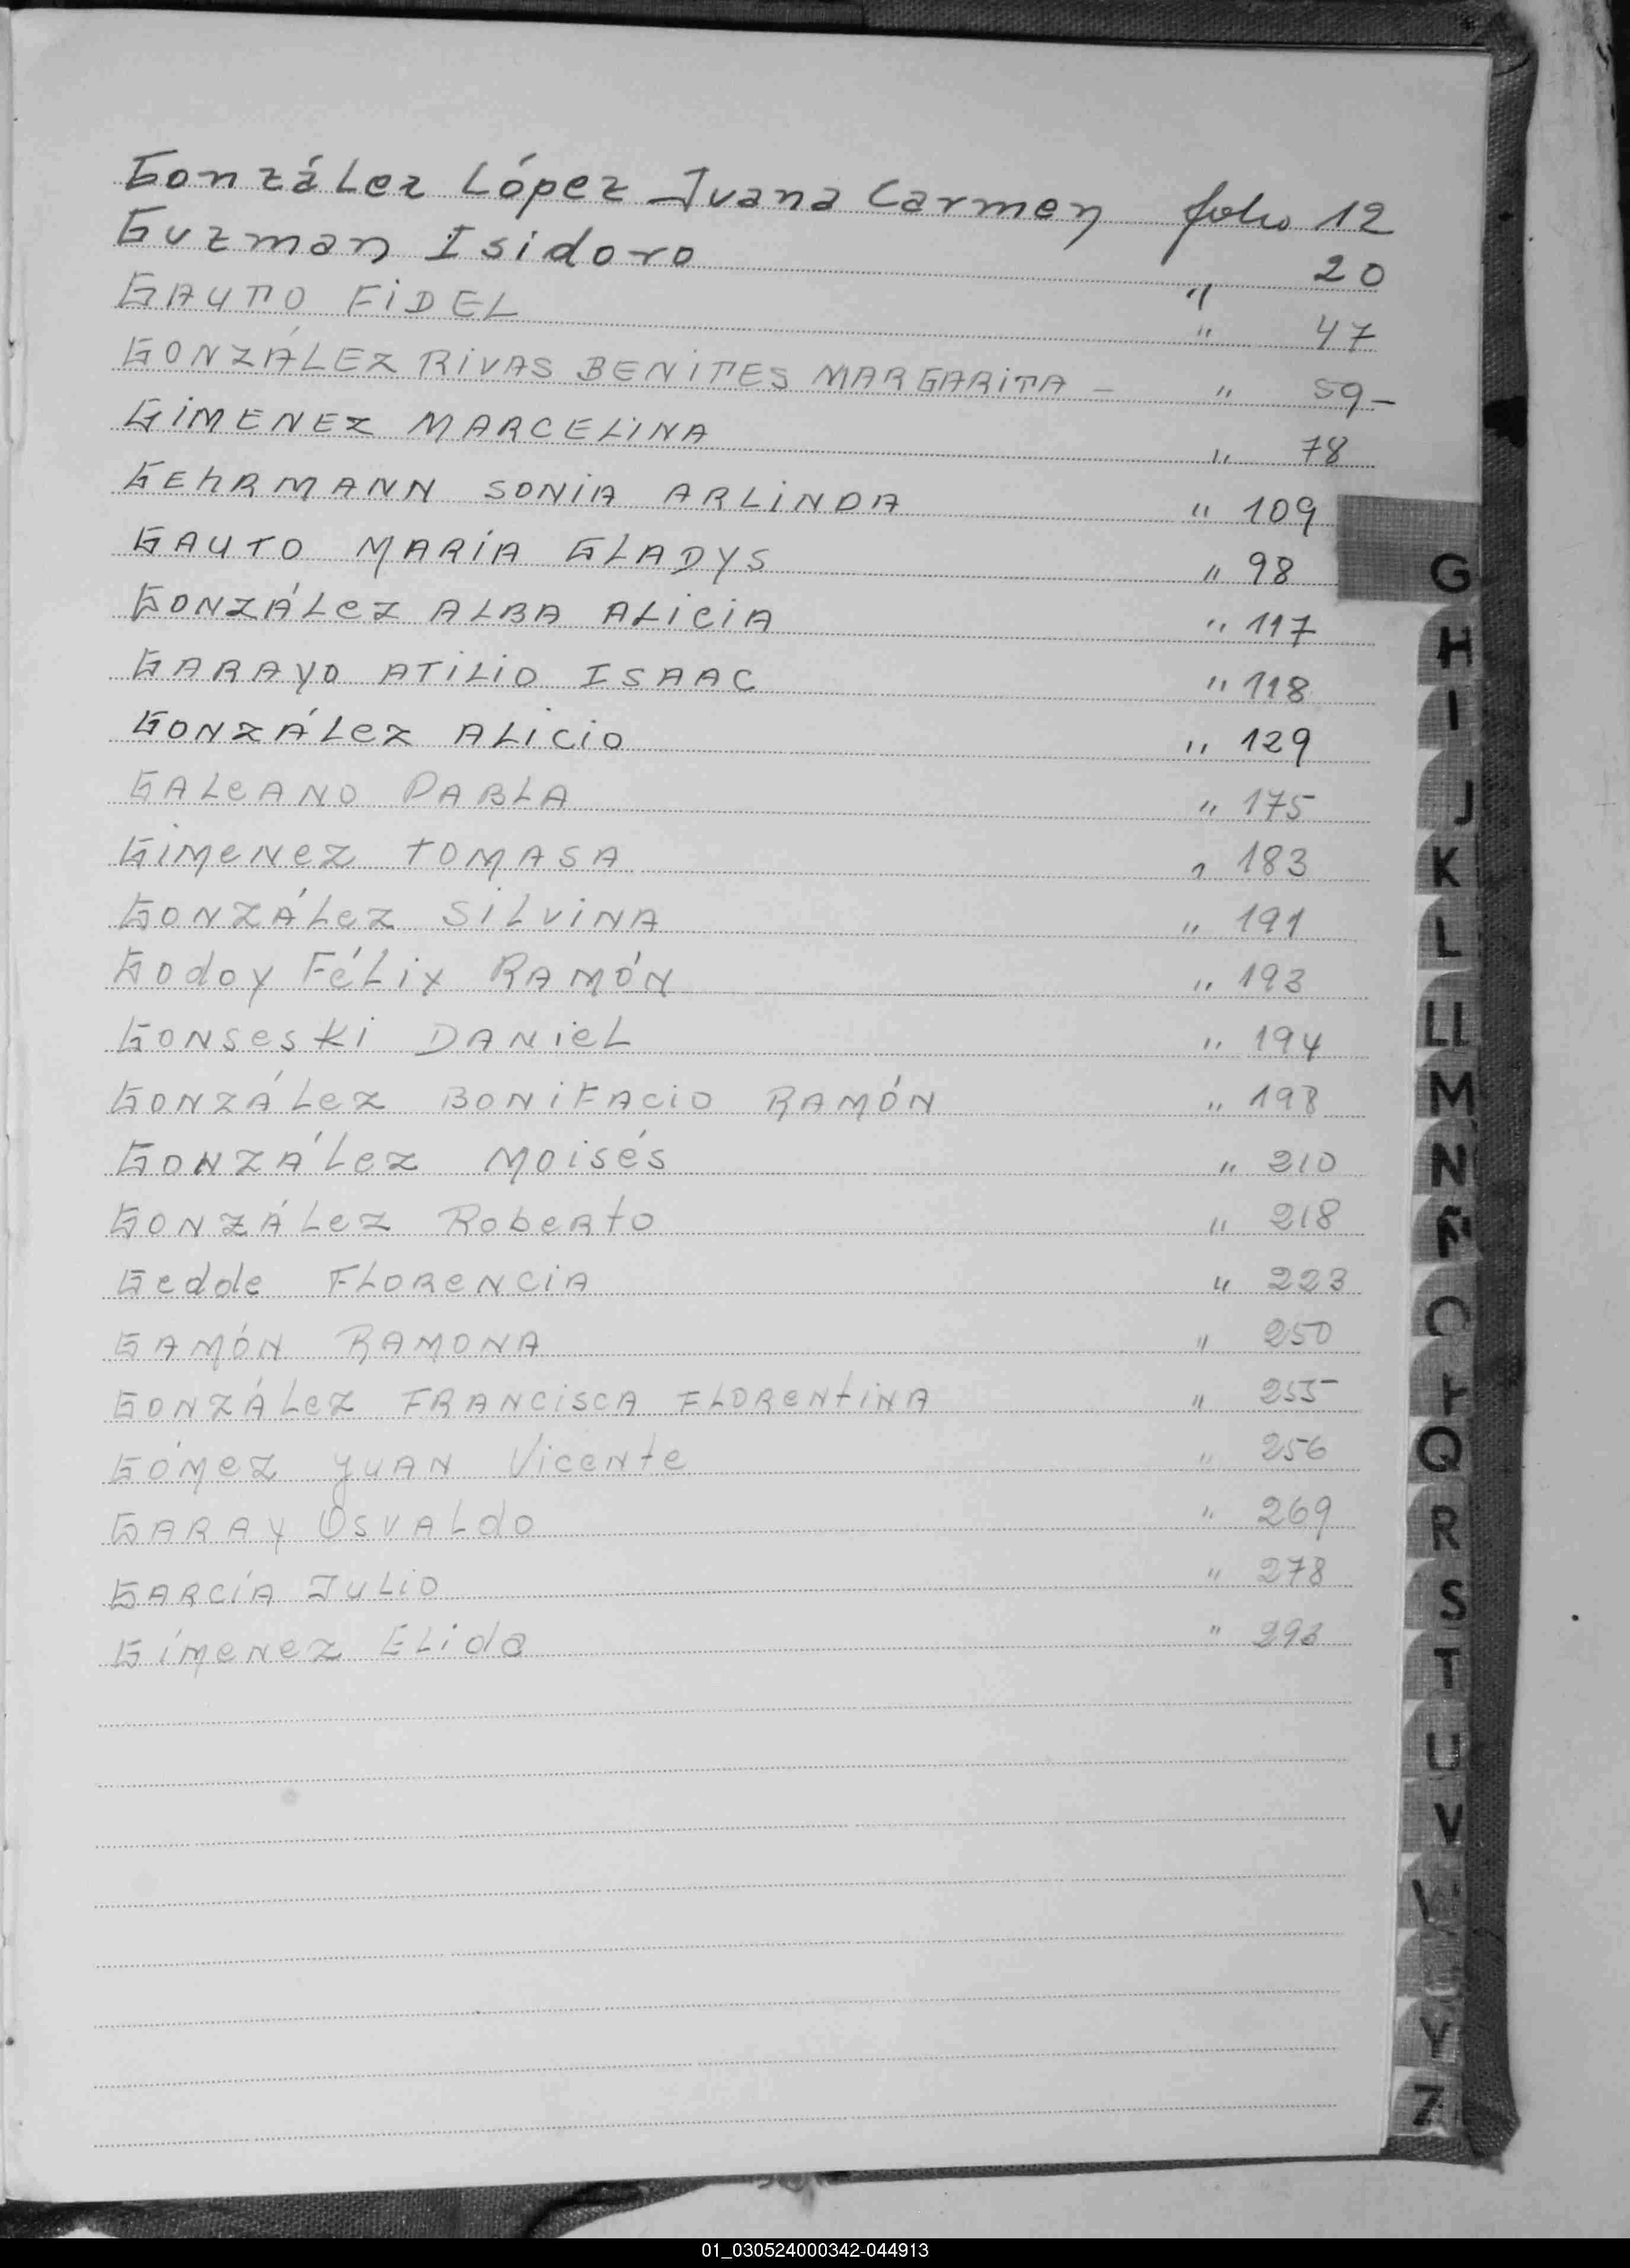 González López Juana Carmen folio 12
Guzman Isidoro " 20
GAUTO FIDEL " 47
GONZÁLEZ RIVAS BENITES MARGARITA - " 59-
GIMENEZ MARCELINA " 78
GEhRMANN SONIA ARLINDA " 109
GAUTO MARÍA GLADYS " 98
GONZÁLeZ ALBA ALICIA " 117
GARAYO ATILIO ISAAC " 118
GONZÁLeZ ALICIO " 129
GALeANO PABLA " 175
GIMeNeZ TOMASA " 183
GONZÁLeZ SILVINA " 191
Godoy FéLix RAMÓN " 193
GONSeSKi DANieL " 194
GONZÁLeZ BONIFACIO RAMÓN " 198
GONZÁLeZ MOiSéS " 210
GONZÁLeZ RobeRto " 218
Gedde FLOReNCIA " 223
GAMÓN RAMONA " 250
GONZÁLeZ FRANCISCA FLOReNtINA " 255
GÓMeZ JUAN ViceNte " 256
GARAY OSVALdo " 269
GARCÍA JULIO " 278
GímeNeZ ELida " 293
G
H
I
J
K
L
LL
M
N
Ñ
O
P
Q
R
S
T
U
V
Y
Z
01_030524000342-044913